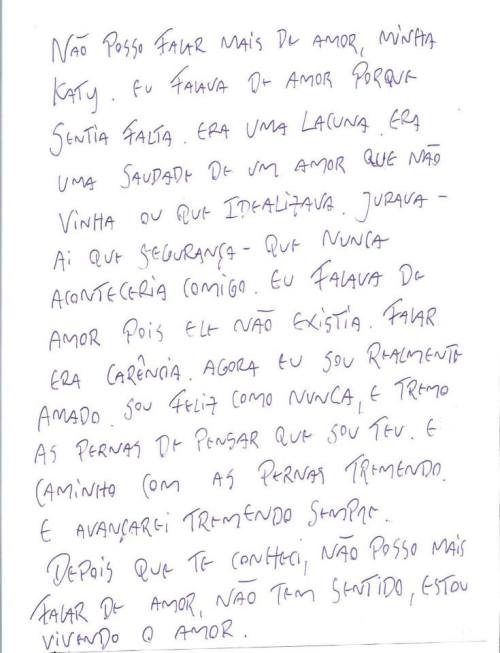 NÃO POSSO FALAR MAIS DE AMOR, MINHA
KATY. EU FALAVA DE AMOR PORQUE
SENTIA FALTA. ERA UMA LACUNA. ERA
UMA SAUDADE DE UM AMOR QUE NÃO
VINHA OU QUE IDEALIZAVA. JURAVA -
AI QUE SEGURANÇA - QUE NUNCA
ACONTECERIA COMIGO. EU FALAVA DE
AMOR POIS ELE NÃO EXISTIA. FALAR
ERA CARÊNCIA. AGORA EU SOU REALMENTE
AMADO. SOU FELIZ COMO NUNCA, E TREMO
AS PERNAS DE PENSAR QUE SOU TEU. E
CAMINHO COM AS PERNAS TREMENDO.
E AVANÇAREI TREMENDO SEMPRE.
DEPOIS QUE TE CONHECI, NÃO POSSO MAIS
FALAR DE AMOR, NÃO TEM SENTIDO, ESTOU
VIVENDO O AMOR.